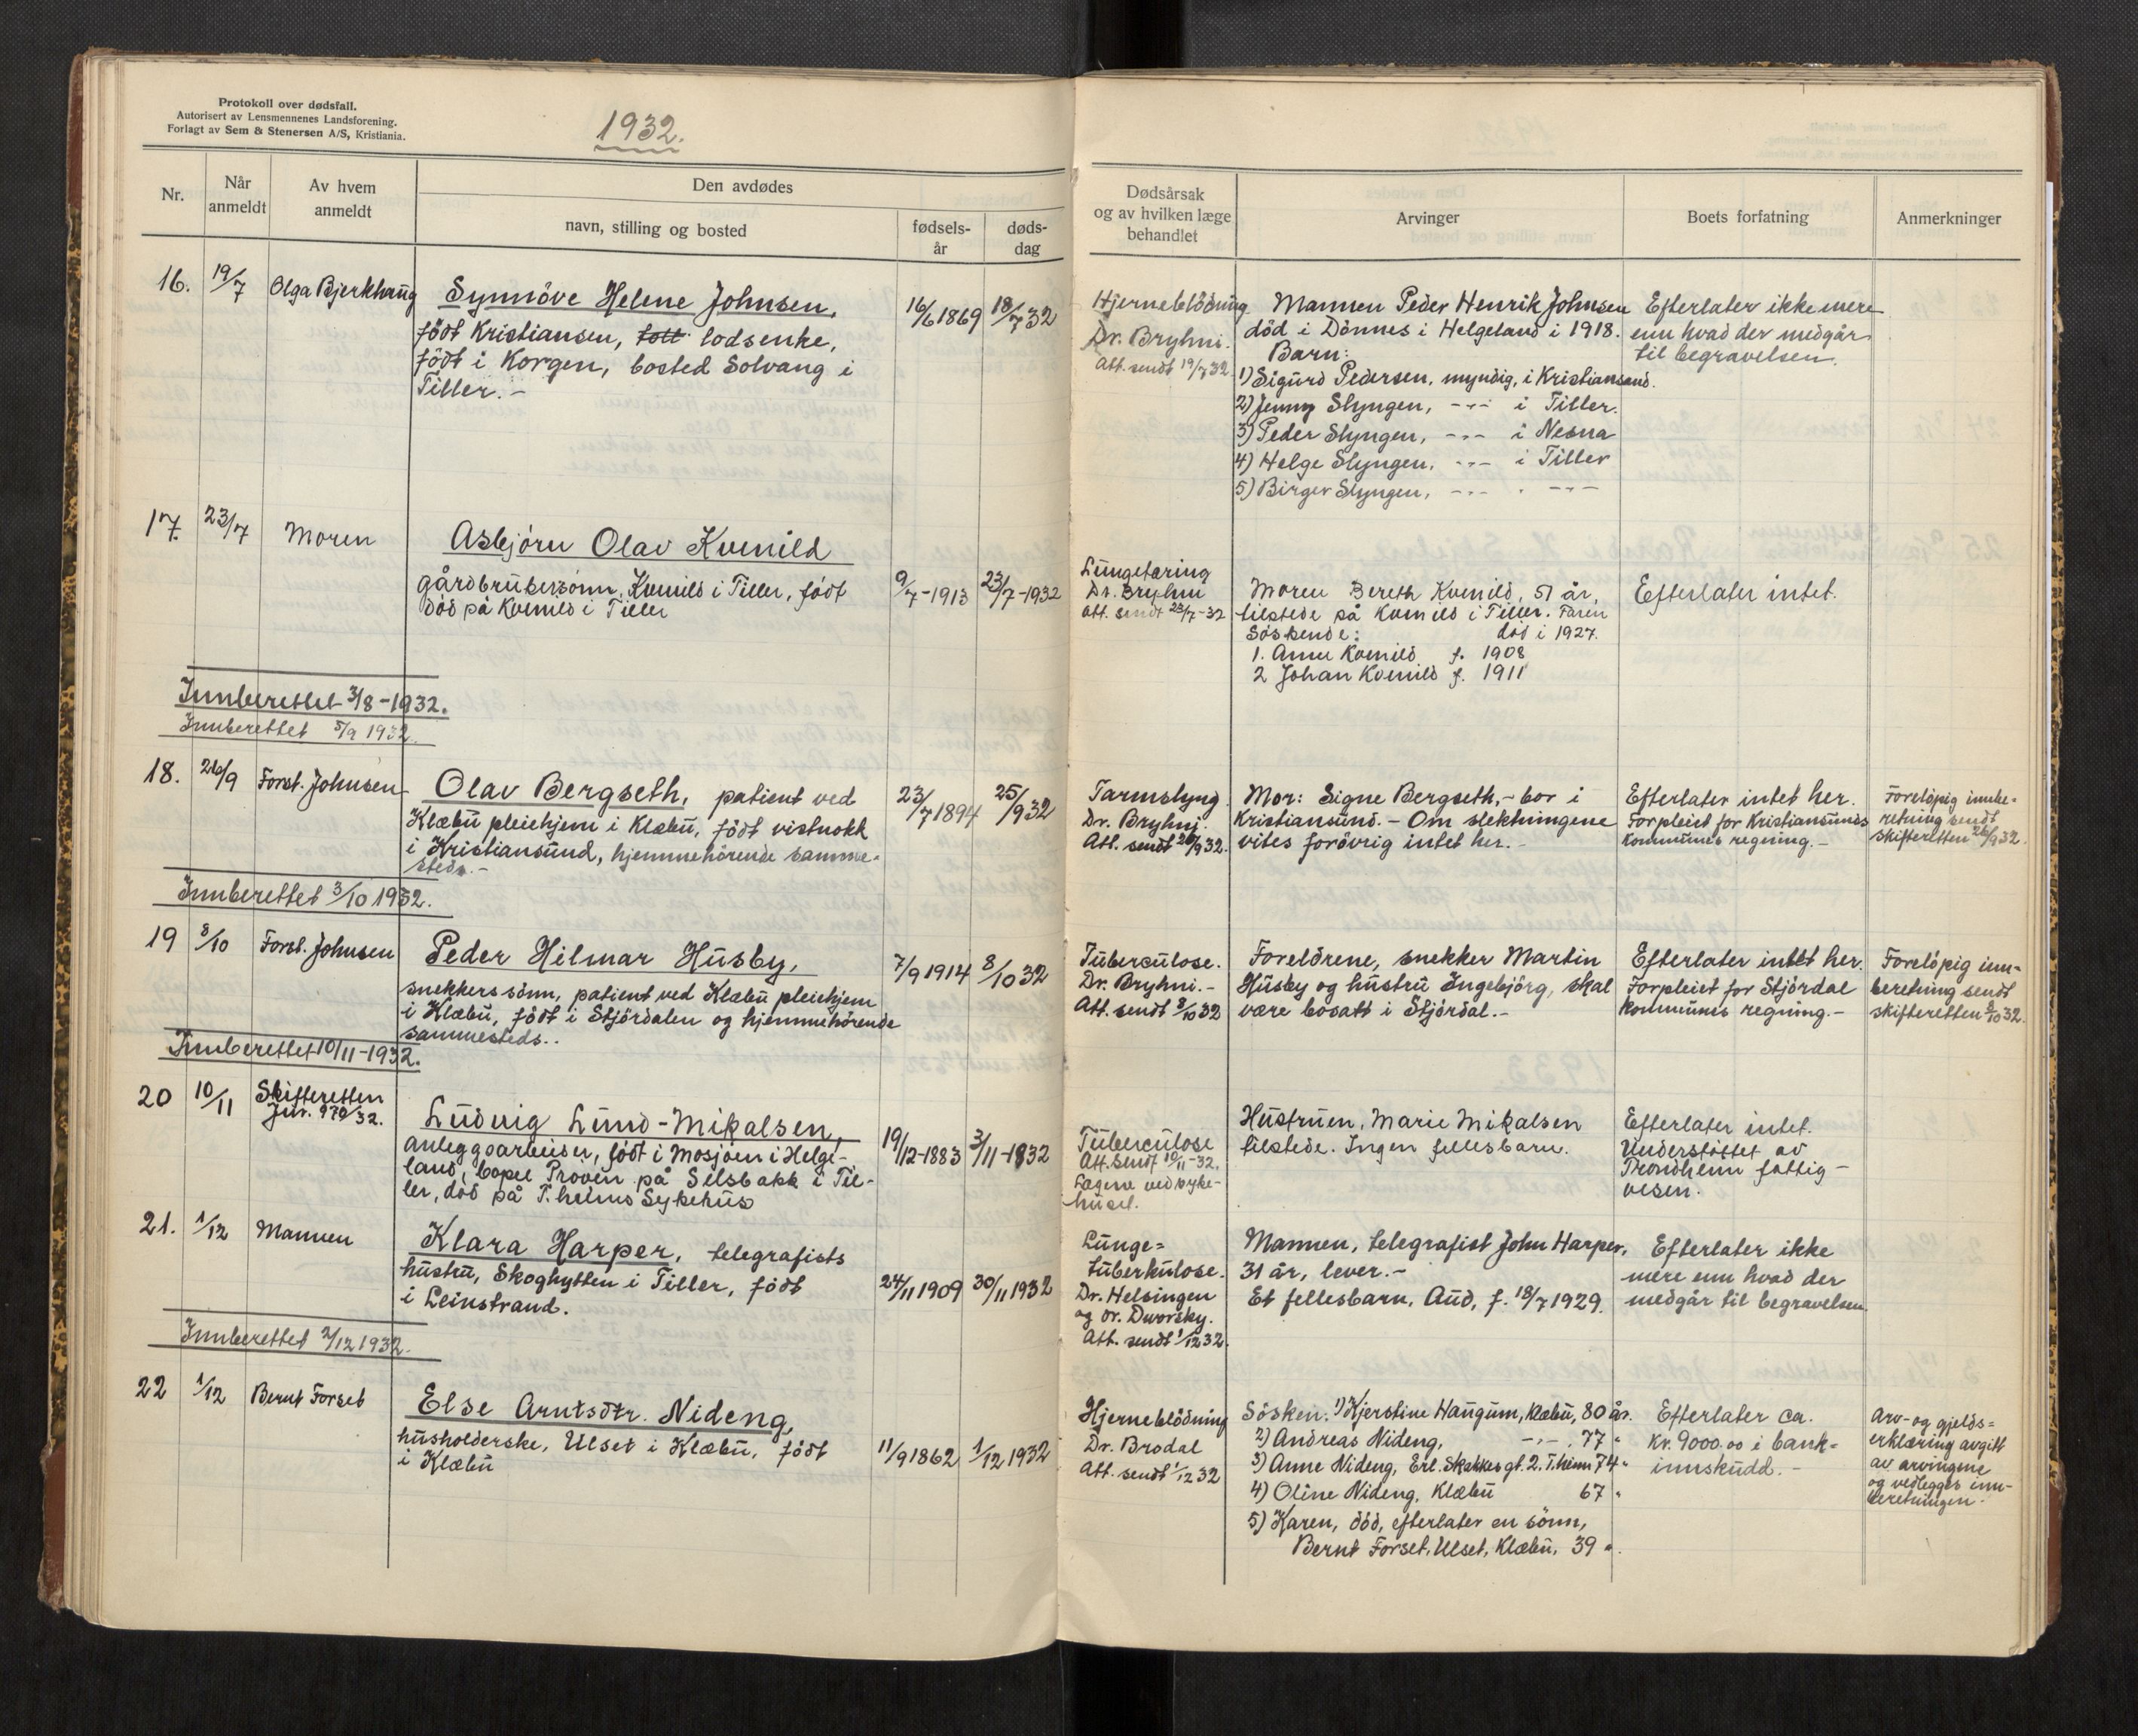 Protokoll over dødsfall.
Autorisert av Lensmennenes Landsforening.
Forlagt av Sem & Stenersen A/S, Kristiania.
1932.
Nr.
Når anmeldt
Av hvem anmeldt
Den avdødes
navn, stilling og bosted
fødsels-
år
døds-
dag
Dødsårsak
og av hvilken læge
behandlet
Arvinger
Boets forfatning
Anmerkninger
16. 19/7 Olga Bjerkhaug
Synnöve Helene Johnsen,
födt Kristiansen, lodsenke,
födt i Korgen, bosted Solvang i
Tiller.-
16/6 1869 18/7 32
Hjerneblödning
Dr. Bryhni.
Att. sendt 19/7 32
Mannen Peder Henrik Johnsen
död i Dönnes i Helgeland i 1918.
Barn:
1) Sigurd Pedersen, myndig, i Kristiansand.
2) Jenny Slyngen, -"- i Tiller.
3) Peder Slyngen, -"- i Nesna
4) Helge Slyngen, -"- i Tiller
5) Birger Slyngen, -"- " -"-
Efterlater ikke mere
enn hvad der medgår
til begravelsen.
17. 23/7 Moren
Asbjörn Olav Kvenild
gårdbrukersönn, Kvenild i Tiller, födt
död på Kvenild i Tiller
9/7-1913 23/7-1932
Lungetæring
Dr. Bryhni
att. sendt 23/7-32
Moren Bereth Kvenild, 51 år,
tilstede på Kvenild i Tiller. Faren
Söskende: död i 1927.
1. Anne Kvenild f. 1908
2 Johan Kvenild f. 1911
Efterlater intet.
Innberettet 3/8-1932.
Innberettet 5/9 1932.
18. 26/9 Forst. Johnsen
Olav Bergseth, patient ved
Klæbu pleiehjem i Klæbu, födt vistnokk
i Kristiansund, hjemmehörende samme-
steds.-
23/7 1894 25/9 32
Tarmslyng
Dr. Bryhni.
Att. sendt 26/9 32.
Mor: Signe Bergseth,- bor i
Kristiansund.- Om slektningene
vites forövrig intet her.-
Efterlater intet her.
Forpleiet for Kristiansunds
kommunes regning.-
Forelöpig innbe-
retning sendt
skifteretten 26/9 32.
Innberettet 3/10 1932.
19 8/10 Forst. Johnsen
Peder Hilmar Husby,
snekkerssönn, patient ved Klæbu pleiehjem
i Klæbu, födt i Stjördalen og hjemmehörende
sammesteds..
7/9 1914 8/10 32
Tuberculose.
Dr. Bryhni.-
Att. sendt 8/10 32
Foreldrene, snekker Martin
Husby og hustru Ingebjörg, skal
være bosatt i Stjördal.-
Efterlater intet her.
Forpleiet for Stjördal
kommunes regning.-
Forelöpig inn-
beretning sendt
skifteretten 8/10 32.
Innberettet 10/11-1932.
20 10/11 Skifteretten
Jnr. 970/32.
Ludvig Lund-Mikalsen,
anleggsarbeider, födt i Mosjöen i Helge-
land, bopel Pröven på Selsbakk i Til-
ler, död på T.heims Sykehus
19/12-1883 3/11-1932
Tuberculose
Att. sendt 10/11-32.
Lægene ved syke-
huset.
Hustruen, Marie Mikalsen
tilstede. Ingen fellesbarn.
Efterlater intet.
Understöttet av
Trondheim fattig-
vesen.
21. 1/12 Mannen
Klara Harper, telegrafists
hustru, Skoghytten i Tiller, födt
i Leinstrand.
24/11 1909 30/11 1932
Lunge=
tuberkulose.
Dr. Helsingen
og dr. Dworsky.
Att. sendt 1/12 32.
Mannen, telegrafist John Harper,
31 år, lever.-
Et fellesbarn, Aud, f. 18/7 1929.
Efterlater ikke
mere enn hvad der
medgår til begravelsen.
Innberettet 2/12 1932.
22 1/12 Bernt Forset
Else Arntsdtr. Nideng,
husholderske, Ulset i Klæbu, födt
i Klæbu
11/9 1862 1/12 1932
Hjerneblödning
Dr. Brodal
Att. sendt 1/12 32
Sösken: 1) Kjerstine Haugum, Klæbu, 80 år.
2) Andreas Nideng, -"- . 77 "
3) Anne Nideng, Erl. Skakkes gt. 2. T.heim 74 "
4) Oline Nideng, Klæbu 67 "
5) Karen, död, efterlater en sönn,
Bernt Forset, Ulset, Klæbu, 39 ".
Efterlater ca.
kr. 9000.00 i bank=
innskudd.-
Arv- og gjelds=
erklæring avgitt
av arvingene
og vedlegges inn-
beretningen.